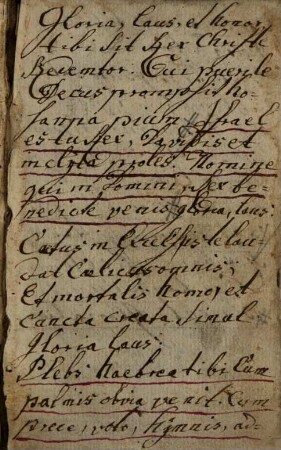 Gloria, Laus, et honor,
tibi sit Rex Christe
Redemtor. Cui puerile
Decus prompsit Ho-
sanna pium. Israel
es tu Rex, Davidis et
inclyta proles. Nomine
qui in Domini, Rex be-
nedicte venis, gloria, laus.
Cœtus in Excelsis te lau-
dat Cælicus omnis,
Et mortalis homo, et
cuncta creata simul.
Gloria Laus.
Plebs haebrea tibi Cum
palmis obvia venit. Cum
prece, voto, hymnis, ad-